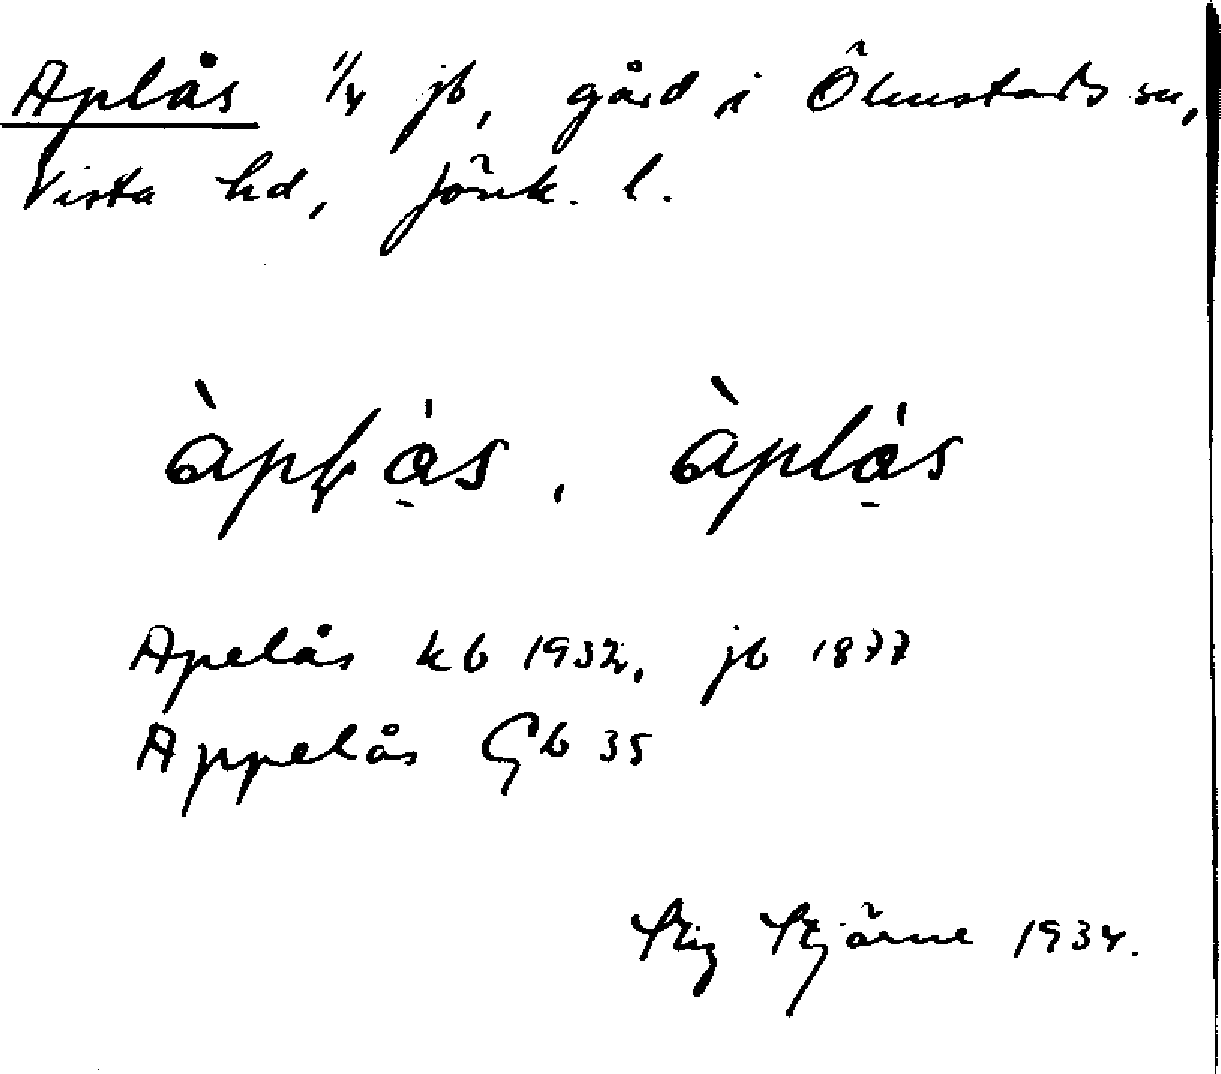 Aplås 1/4 jb, gård i Ölmstads sn,
Vista hd, Jönk. l.
àplás, àplás
Apelås kb 1932, jb 1877
Appelås Gb 35
Stig Stjärne 1934.